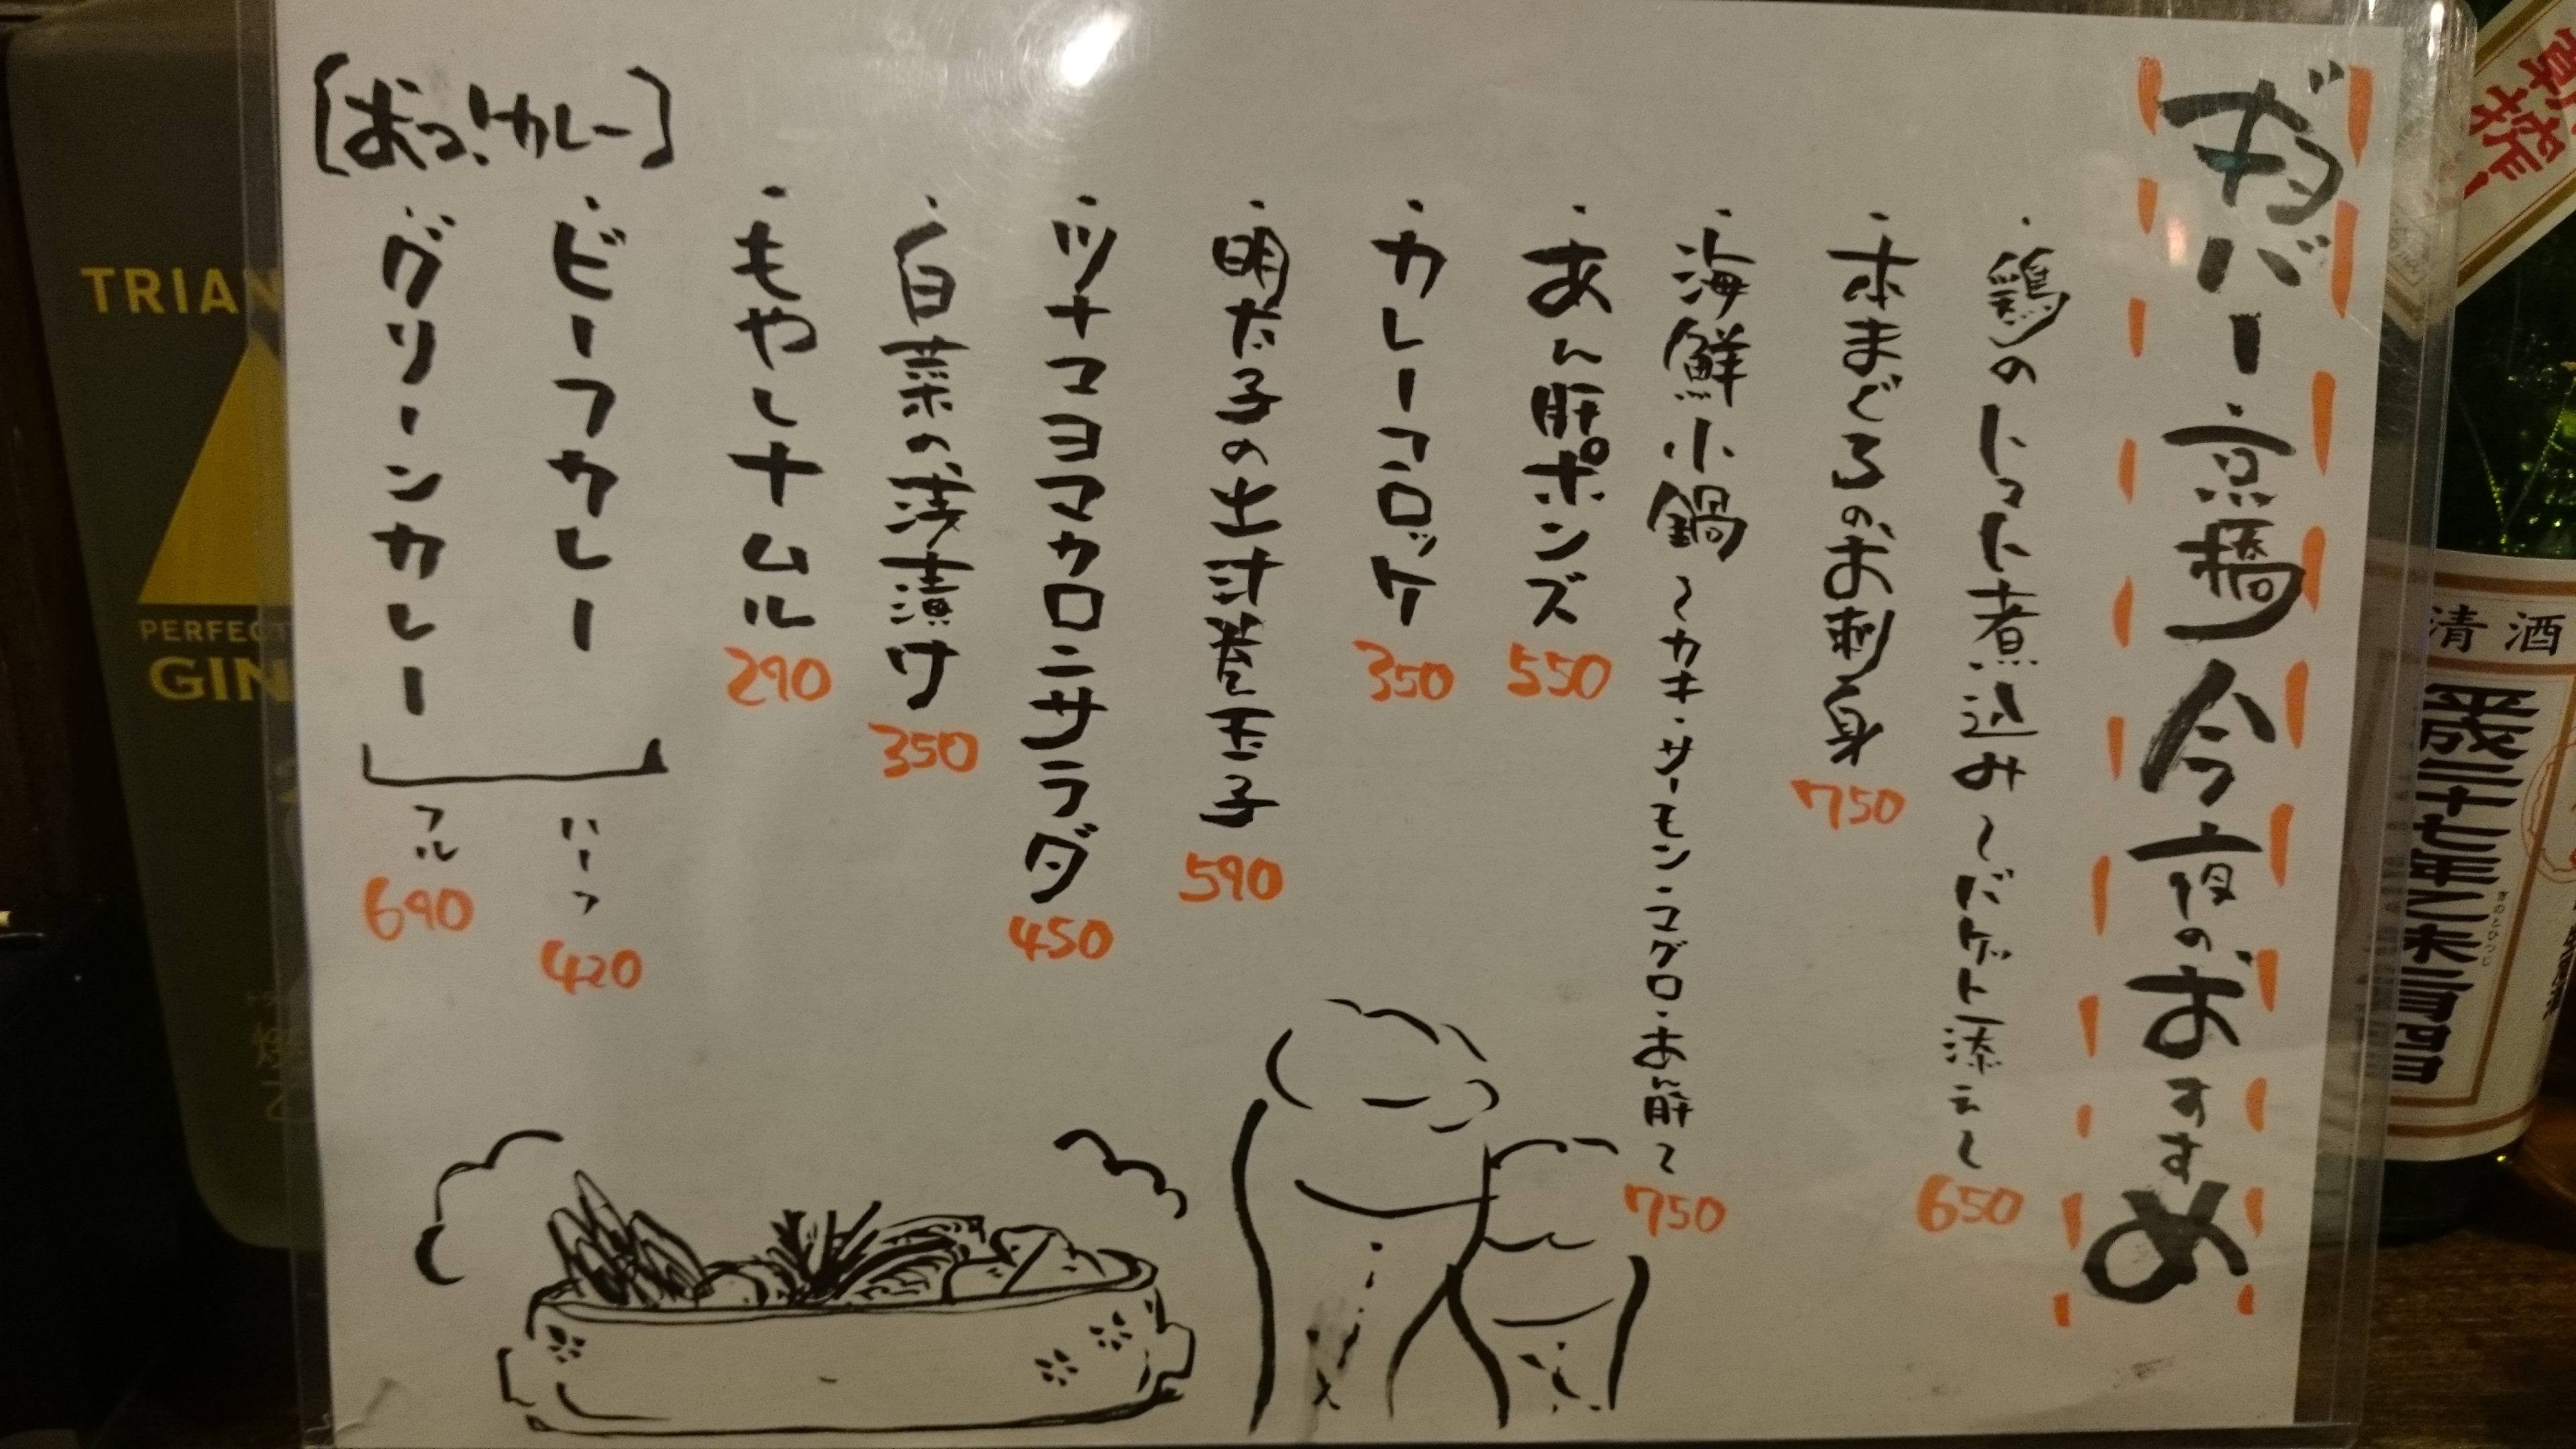 ギョバー京橋 今夜のおすすめ
・鶏のトマト煮込み~バゲット添え~ 650
・本まぐろのお刺身 750
・海鮮小鍋~カキ・サーモン・マグロ・あん肝~ 750
・あん肝ポンズ 550
・カレーコロッケ 350
・明太子の出汁巻玉子 590
・ツナマヨマカロニサラダ 450
・白菜の浅漬け 350
・もやしナムル 290
[おっ!カレー]
・ビーフカレー
・グリーンカレー
ハーフ 420
フル 690
TRIAN
PERFECT
GIN
清酒